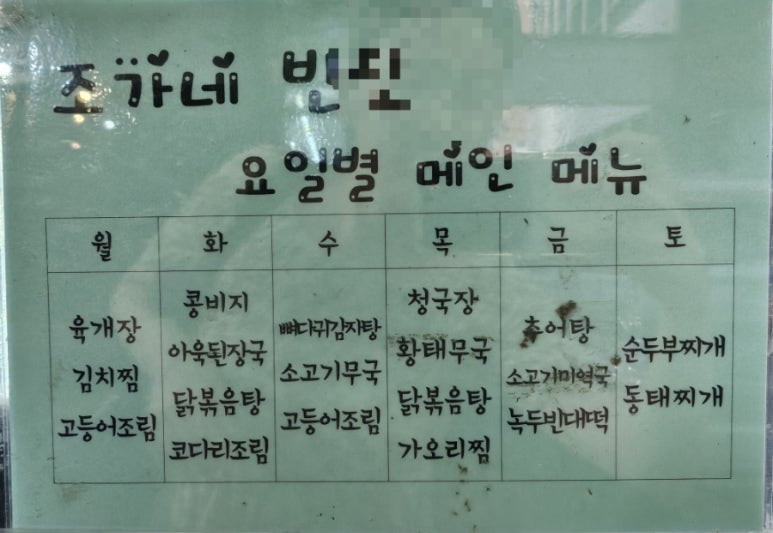 조가네
요일별 메인 메뉴
월 화 수 목 금 토
육개장
김치찜
고등어조림
콩비지
아욱된장국
닭볶음탕
코다리조림
뼈다귀감자탕
소고기무국
고등어조림
청국장
황태무국
닭볶음탕
가오리찜
추어탕
소고기미역국
녹두빈대떡
순두부찌개
동태찌개